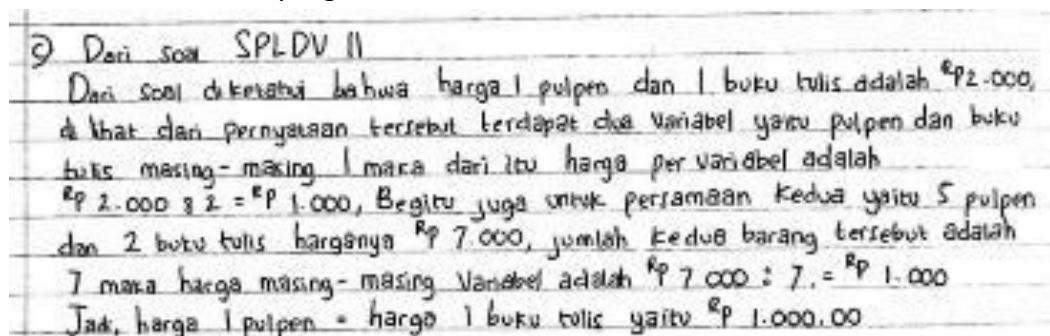 9) Dari soal SPLDV 11
Dari soal diketahui bahwa harga 1 pulpen dan 1 buku tulis adalah Rp2.000,
di lihat dari pernyataan tersebut terdapat dua Variabel yaitu pulpen dan buku
tulis masing-masing 1 maka dari itu harga per variabel adalah
Rp 2.000 : 2 = Rp 1.000, Begitu juga untuk persamaan kedua yaitu 5 pulpen
dan 2 buku tulis harganya Rp 7.000, jumlah kedua barang tersebut adalah
7 maka harga masing-masing Variabel adalah Rp 7 000 : 7. = Rp 1.000
Jadi, harga 1 pulpen = harga 1 buku tulis yaitu Rp 1.000,00